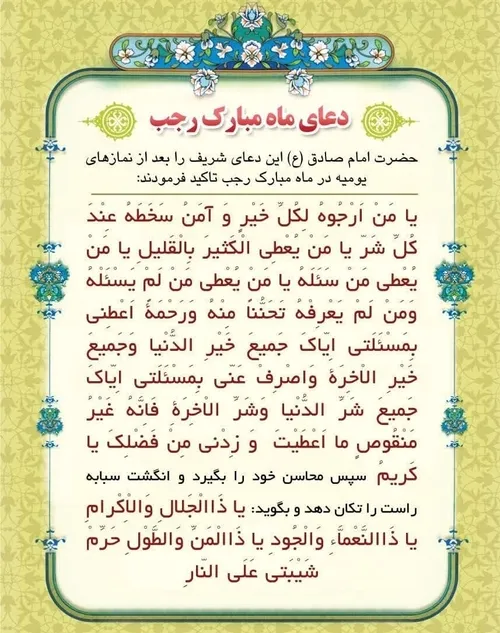 دعای ماه مبارک رجب
حضرت امام صادق (ع) این دعای شریف را بعد از نمازهای
یومیه در ماه مبارک رجب تاکید فرمودند:
یا مَنْ اَرْجُوهُ لِکُلِّ خَیْرٍ وَ آمَنُ سَخَطَهُ عِنْدَ
کُلِّ شَرٍّ یا مَنْ یُعْطِی الْکَثیرَ بِالْقَلیلِ یا مَنْ
یُعْطی مَنْ سَئَلَهُ یا مَنْ یُعْطی مَنْ لَمْ یَسْئَلْهُ
وَمَنْ لَمْ یَعْرِفْهُ تَحَنُّناً مِنْهُ وَرَحْمَةً اَعْطِنی
بِمَسْئَلَتی اِیّاکَ جَمیعَ خَیْرِ الدُّنْیا وَجَمیعَ
خَیْرِ الْاخِرَةِ وَاصْرِفْ عَنّی بِمَسْئَلَتی اِیّاکَ
جَمیعَ شَرِّ الدُّنْیا وَشَرِّ الْاخِرَةِ فَاِنَّهُ غَیْرُ
مَنْقُوصٍ ما اَعْطَیْتَ وَ زِدْنی مِنْ فَضْلِکَ یا
کَریمُ سپس محاسن خود را بگیرد و انگشت سبابه
راست را تکان دهد و بگوید: یا ذَاالْجَلالِ وَالْاِکْرامِ
یا ذَاالنَّعْماَّءِ وَالْجُودِ یا ذَاالْمَنِّ وَالطَّوْلِ حَرِّمْ
شَیْبَتی عَلَی النّارِ